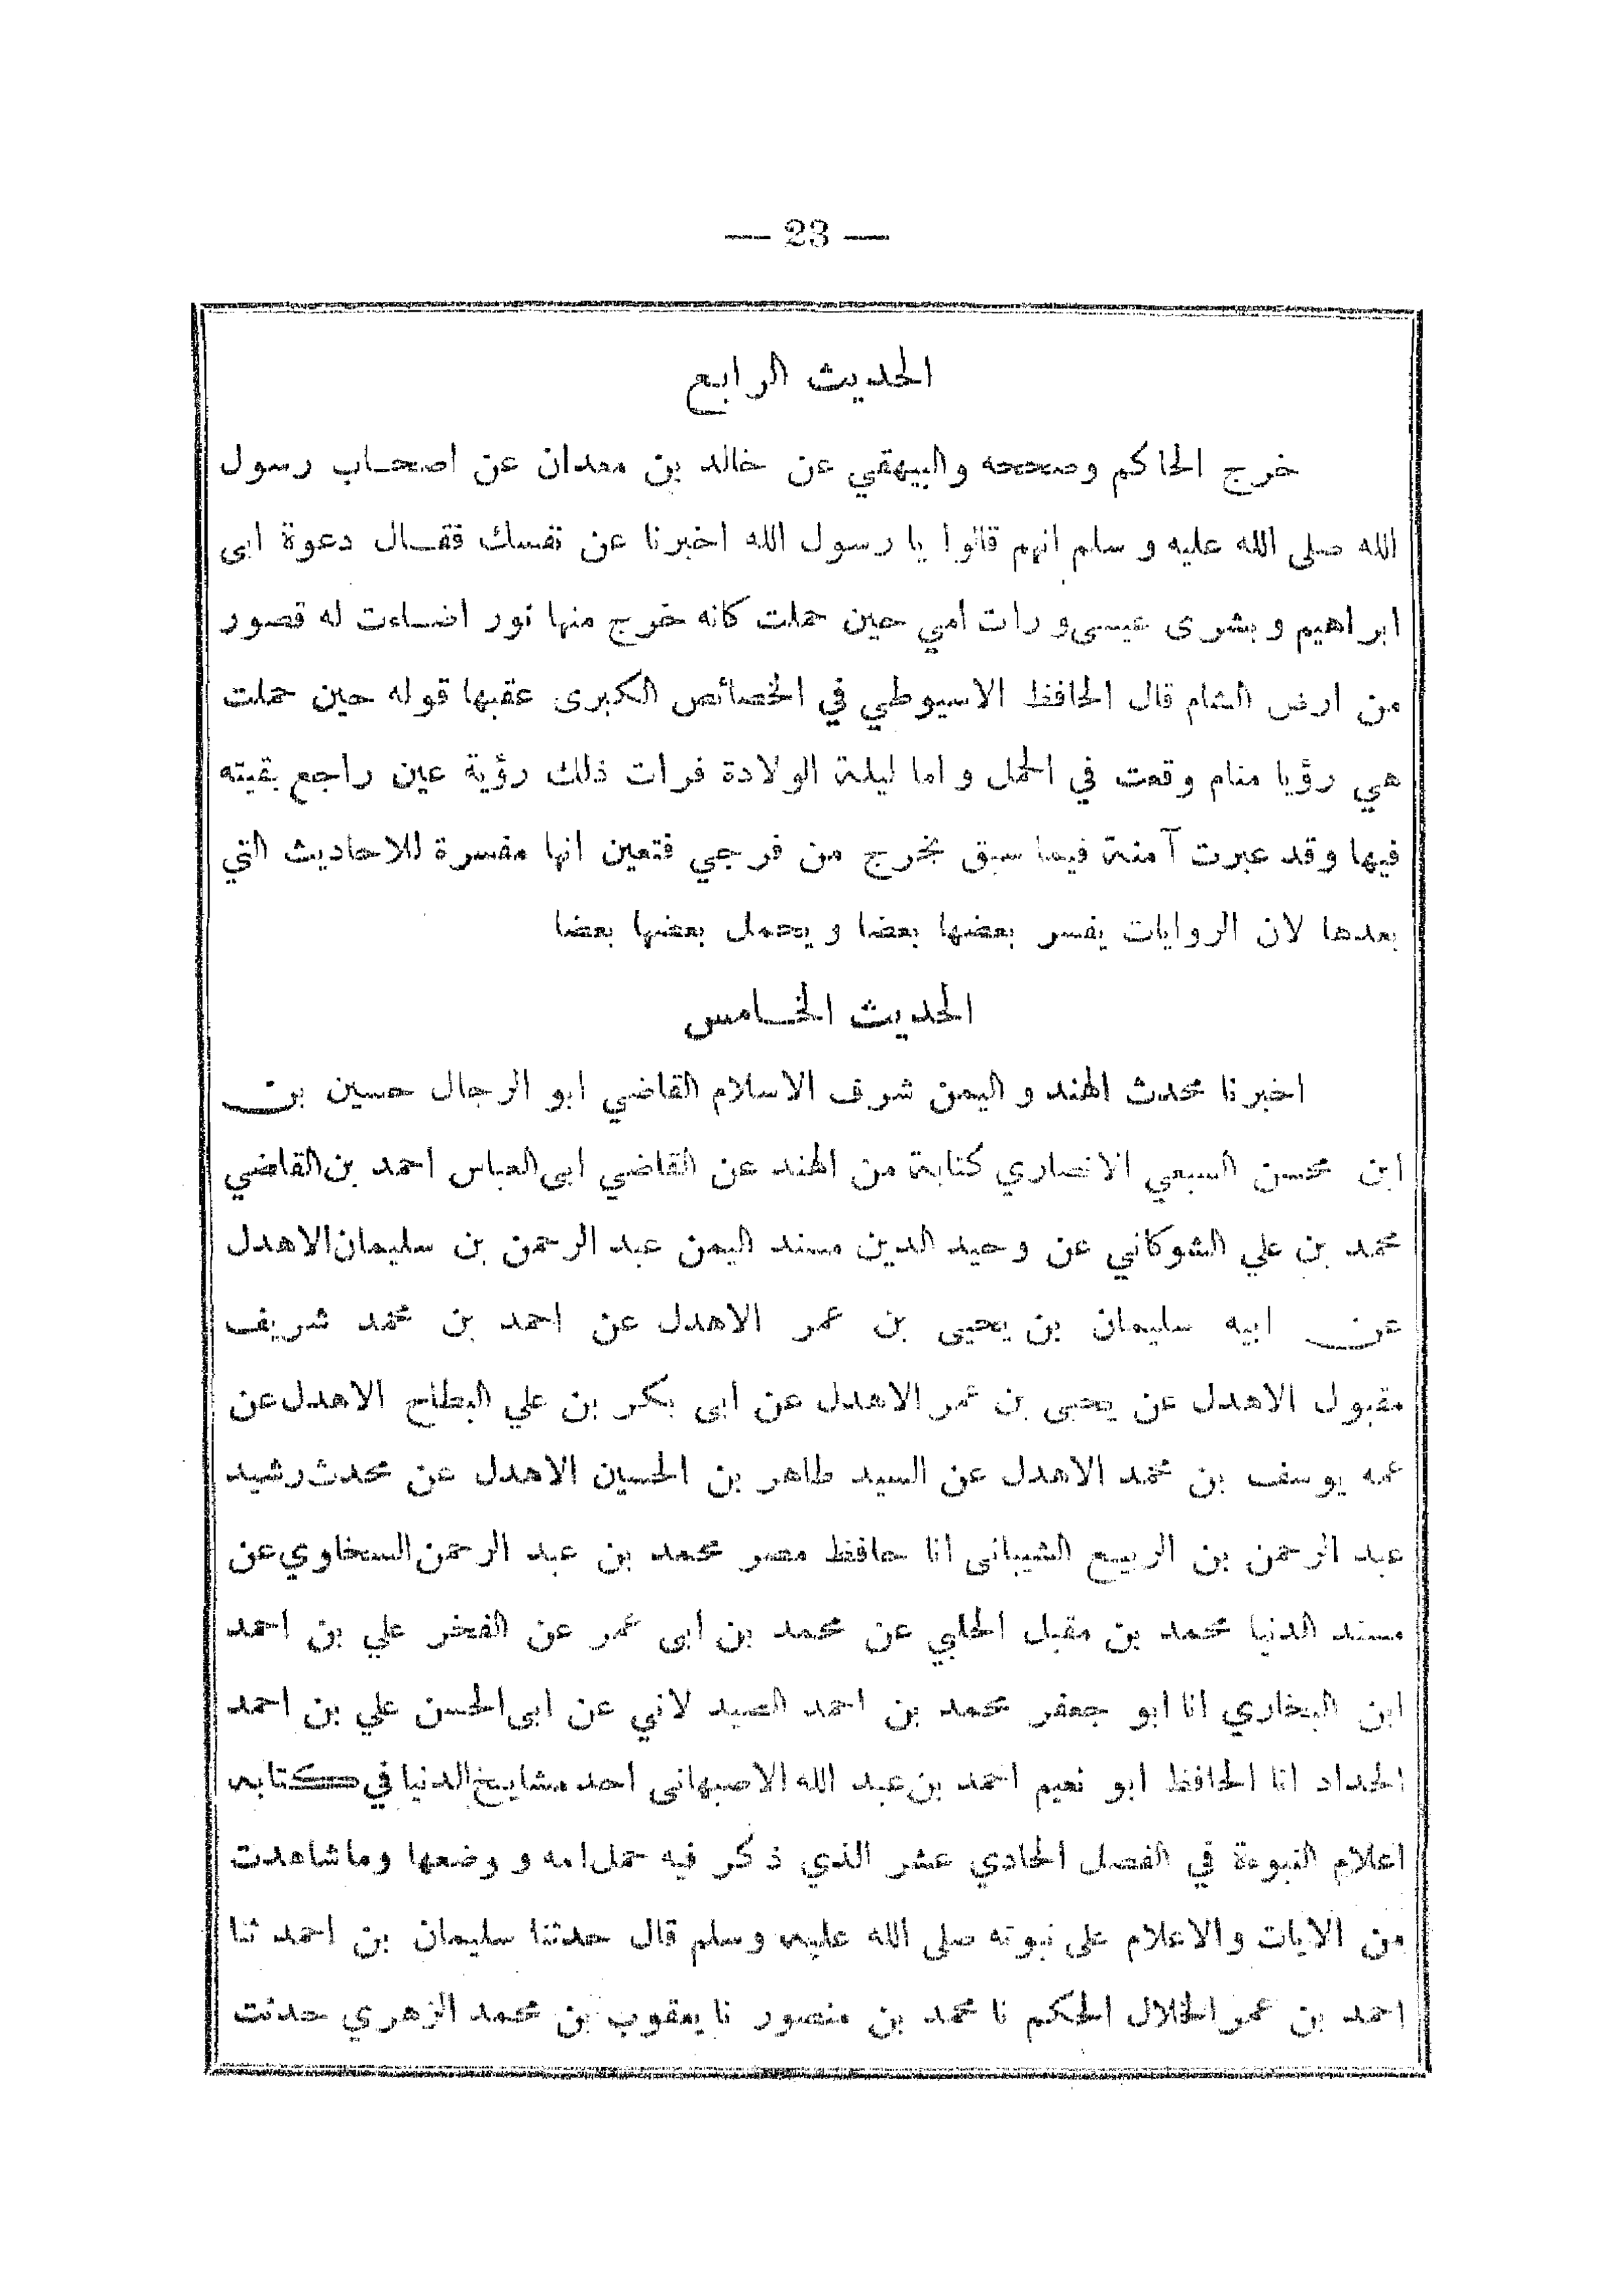 — 23 —
الحديث الرابع
خرج الحاكم وصححه والبيهقي عن خالد بن معدان عن اصحاب رسول
الله صلى الله عليه و سلم انهم قالوا يا رسول الله اخبرنا عن نفسك فقال دعوة ابى
ابراهيم و بشرى عيسى و رات امي حين حملت كانه خرج منها نور اضاءت له قصور
من ارض الشام قال الحافظ الاسيوطي في الخصائص الكبرى عقبها قوله حين حملت
هي رؤيا منام وقعت في الحمل و اما ليلة الولادة فرات ذلك رؤية عين راجع بقيته
فيها وقد عبرت آمنة فيما سبق بخرج من فرجي فتعين انها مفسرة للاحاديث التي
بعدها لان الروايات يفسر بعضها بعضا و يحمل بعضها بعضا
الحديث الخامس
اخبرنا محدث الهند و اليمن شرف الاسلام القاضي ابو الرجال حسين بن
ابن محسن السبعي الانصاري كتابة من الهند عن القاضي ابى العباس احمد بن القاضي
محمد بن علي الشوكاني عن وحيد الدين مسند اليمن عبد الرحمن بن سليمان الاهدل
عن ابيه سليمان بن يحيى بن عمر الاهدل عن احمد بن محمد شريف
مقبول الاهدل عن يحيى بن عمر الاهدل عن ابى بكر بن علي البطاح الاهدل عن
عمه يوسف بن محمد الاهدل عن السيد طاهر بن الحسين الاهدل عن محدث رشيد
عبد الرحمن بن الربيع الشيبانى انا حافظ مصر محمد بن عبد الرحمن السخاوي عن
مسند الدنيا محمد بن مقبل الحلبي عن محمد بن ابى عمر عن الفخر علي بن احمد
ابن البخاري انا ابو جعفر محمد بن احمد الصيد لاني عن ابى الحسن علي بن احمد
الحداد انا الحافظ ابو نعيم احمد بن عبد الله الاصبهانى احد مشاييخ الدنيا في كتابه
اعلام النبوءة في الفصل الحادي عشر الذي ذكر فيه حمل امه و وضعها وما شاهدت
من الايات والاعلام على نبوته صلى الله عليه وسلم قال حدثنا سليمان بن احمد ثنا
احمد بن عمر الخلال الحكم نا محمد بن منصور نا يعقوب بن محمد الزهري حدثت